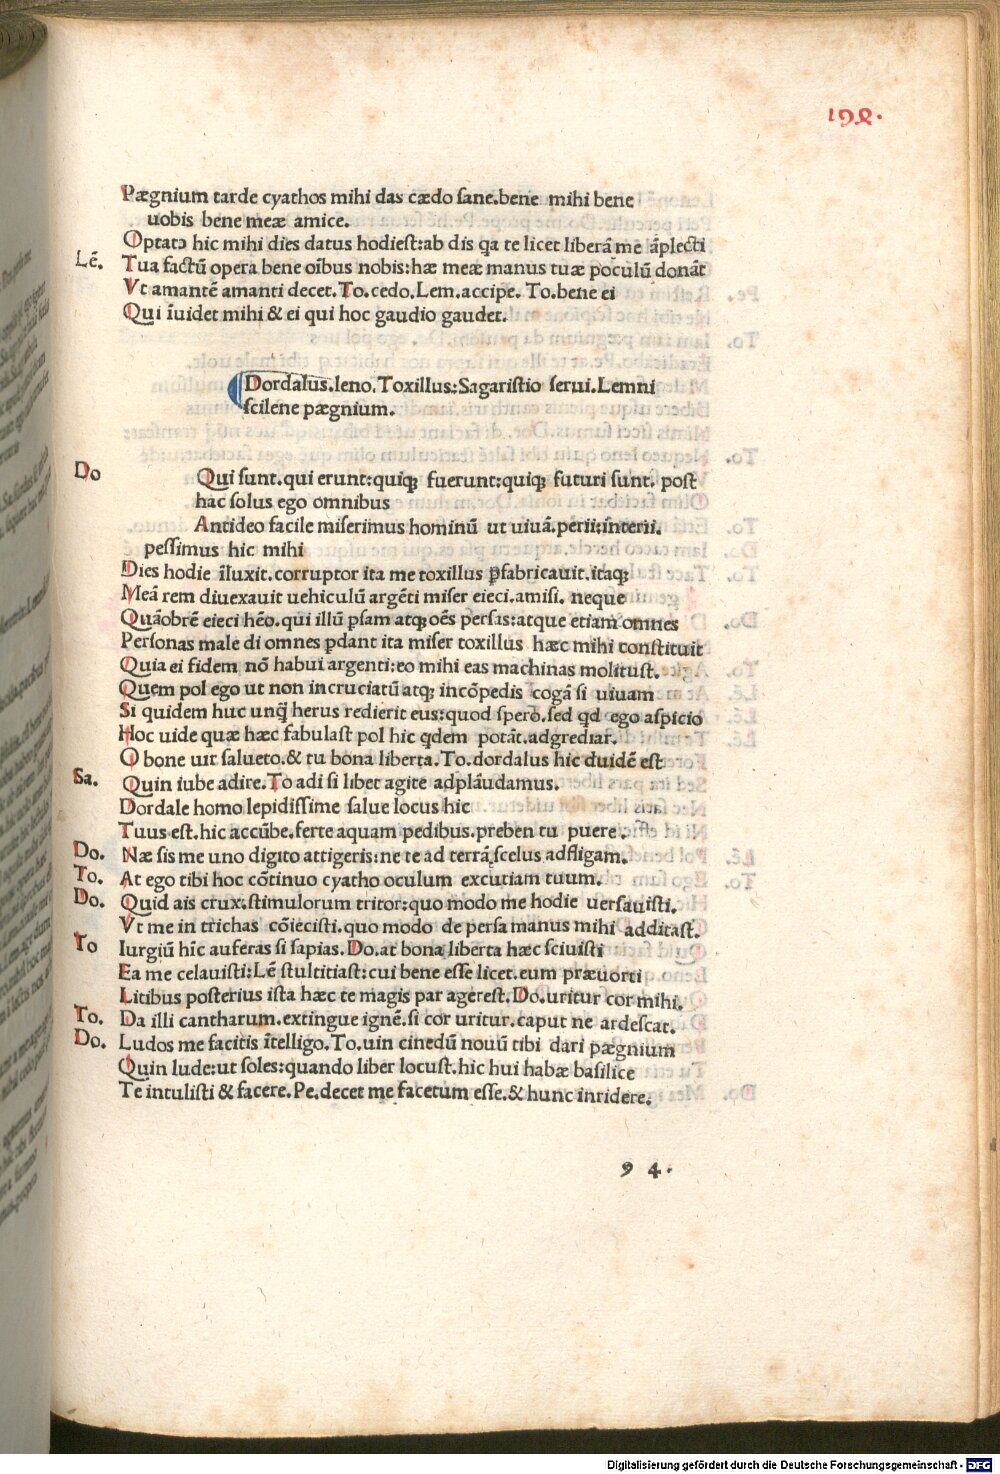 198.
Pægnium tarde cyathos mihi das cædo sane.bene mihi bene
uobis bene meæ amice.
Optato hic mihi dies datus hodieſt:ab dis qa te licet liberã me ãplecti
Lẽ. Tua factũ opera bene oĩbus nobis:hæ meæ manus tuæ poculũ donãt
Vt amantẽ amanti decet.To.cedo.Lem.accipe. To.bene ei
Qui ĩuidet mihi & ei qui hoc gaudio gaudet.
Dordalus.leno.Toxillus:Sagariſtio ſerui.Lemni
ſcilene pægnium.
Do Qui ſunt.qui erunt:quiqꝫ fuerunt:quiqꝫ futuri ſunt. poſt
hac ſolus ego omnibus
Antideo facile miſerimus hominũ ut uiuã.perii:interii.
peſſimus hic mihi
Dies hodie ĩluxit.corruptor ita me toxillus ꝑfabricauit.itaqꝫ
Meã rem diuexauit uehiculũ argẽti miſer eieci.amiſi. neque
Quãobrẽ eieci hẽo.qui illũ ꝑſam atqꝫ oẽs perſas:atque etiam omnes
Perſonas male di omnes ꝑdant ita miſer toxillus hæc mihi conſtituit
Quia ei fidem nõ habui argenti:eo mihi eas machinas molituſt.
Quem pol ego ut non incruciatũ atqꝫ incõpedis cogã ſi uiuam
Si quidem huc unq̃ herus redierit eus:quod ſpero.ſed qd ego aſpicio
Hoc uide quæ hæc fabulaſt pol hic qdem potãt.adgrediar.
O bone uir ſalueto.& tu bona liberta.To.dordalus hic duidẽ eſt
Sa. Quin iube adire.To adi ſi libet agite adplãudamus.
Dordale homo lepidiſſime ſalue locus hic
Tuus eſt.hic accũbe.ferte aquam pedibus.preben tu puere.
Do. Næ ſis me uno digito attigeris:ne te ad terrã ſcelus adfligam.
To. At ego tibi hoc cõtinuo cyatho oculum excutiam tuum.
Do. Quid ais crux.ſtimulorum tritor:quo modo me hodie uerſauiſti.
Vt me in trichas cõieciſti.quo modo de perſa manus mihi additaſt.
To Iurgiũ hĩc auferas ſi ſapias.Do.at bona liberta hæc ſciuiſti
Ea me celauiſti:Lẽ ſtultitiaſt:cui bene eſſe licet.eum præuorti
Litibus poſterius iſta hæc te magis par agereſt.Do.uritur cor mihi.
To. Da illi cantharum.extingue ignẽ.ſi cor uritur.caput ne ardeſcat.
Do. Ludos me facitis ĩtelligo.To.uin cinedũ nouũ tibi dari pægnium
Quin lude:ut ſoles:quando liber locuſt.hic hui habæ baſilice
Te intuliſti & facere.Pe.decet me facetum eſſe.& hunc inridere.
94.
Digitalisierung gefördert durch die Deutsche Forschungsgemeinschaft - DFG